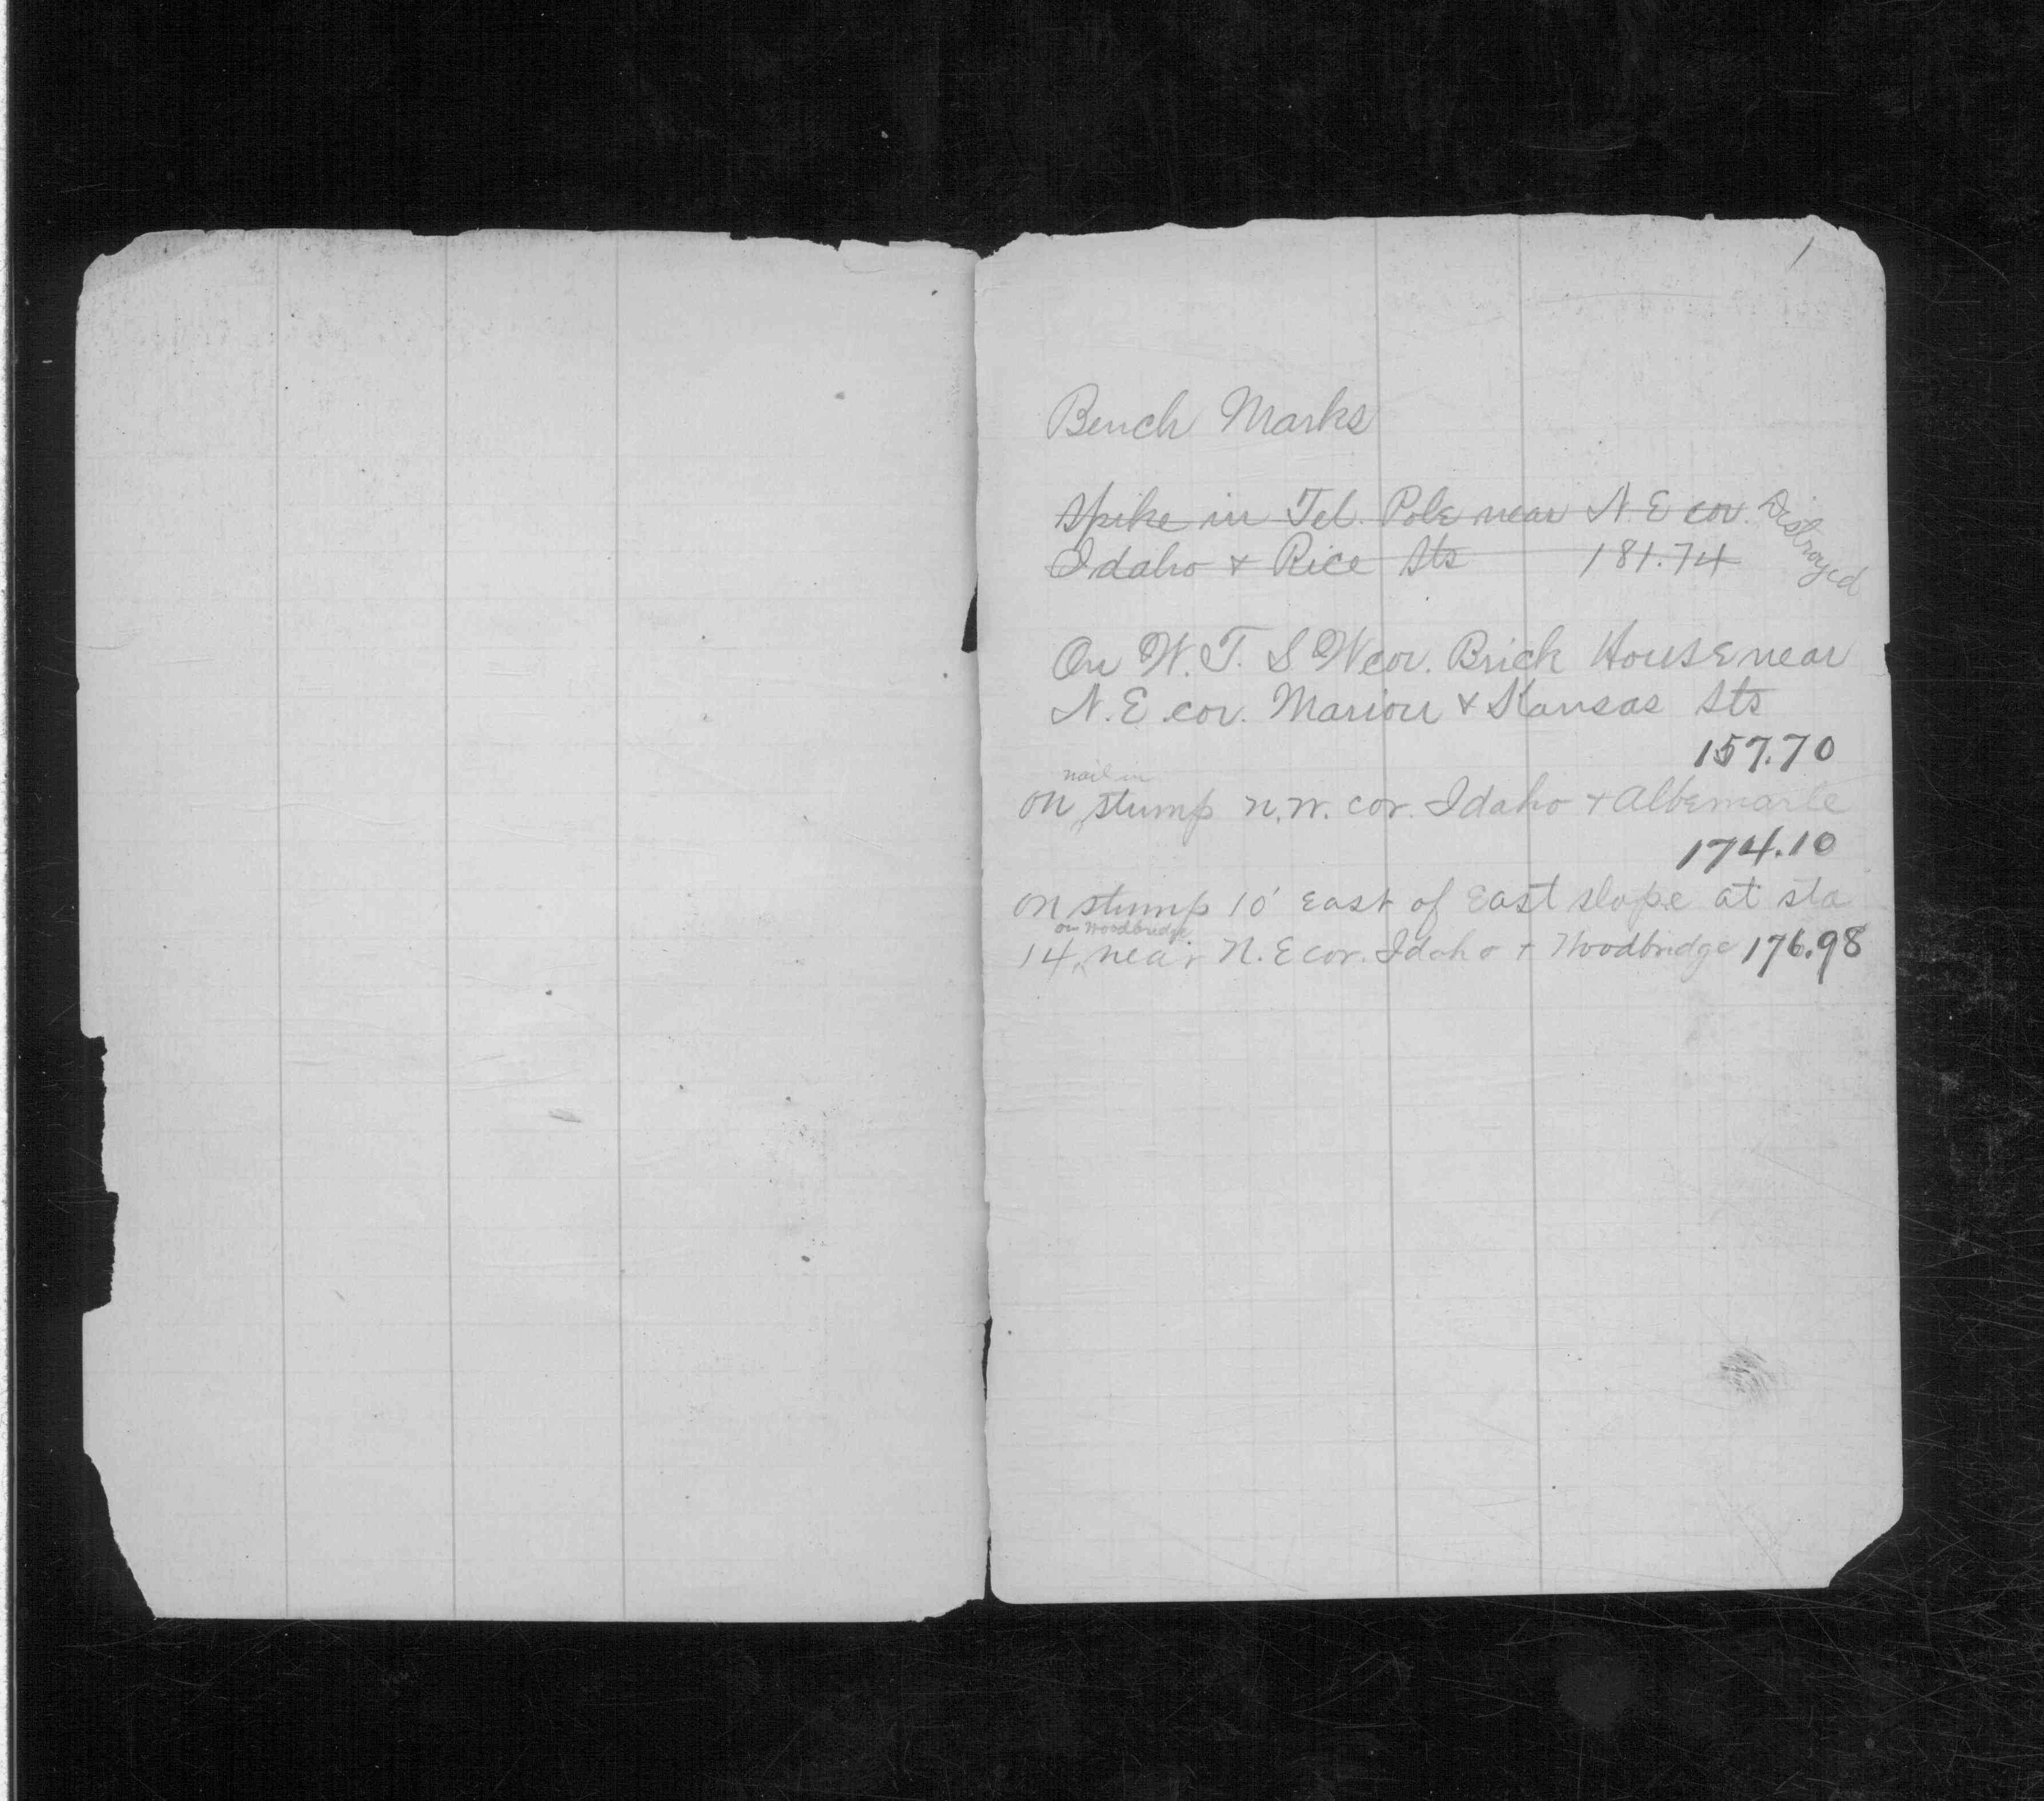 1
Bench Marks
Spike in Tel. Pole near N.E cor. Distroyed
Idaho & Rice Sts 181.74
On W.T. S W cor. Brick House near
N.E. cor. Marion & Kansas Sts
157.70
nail in
on stump n.w. cor. Idaho + Albemarle
174.10
on stump 10' east of East slope at sta
on Woodbridge
14, near N.E cor. Idaho + Woodbridge 176.98